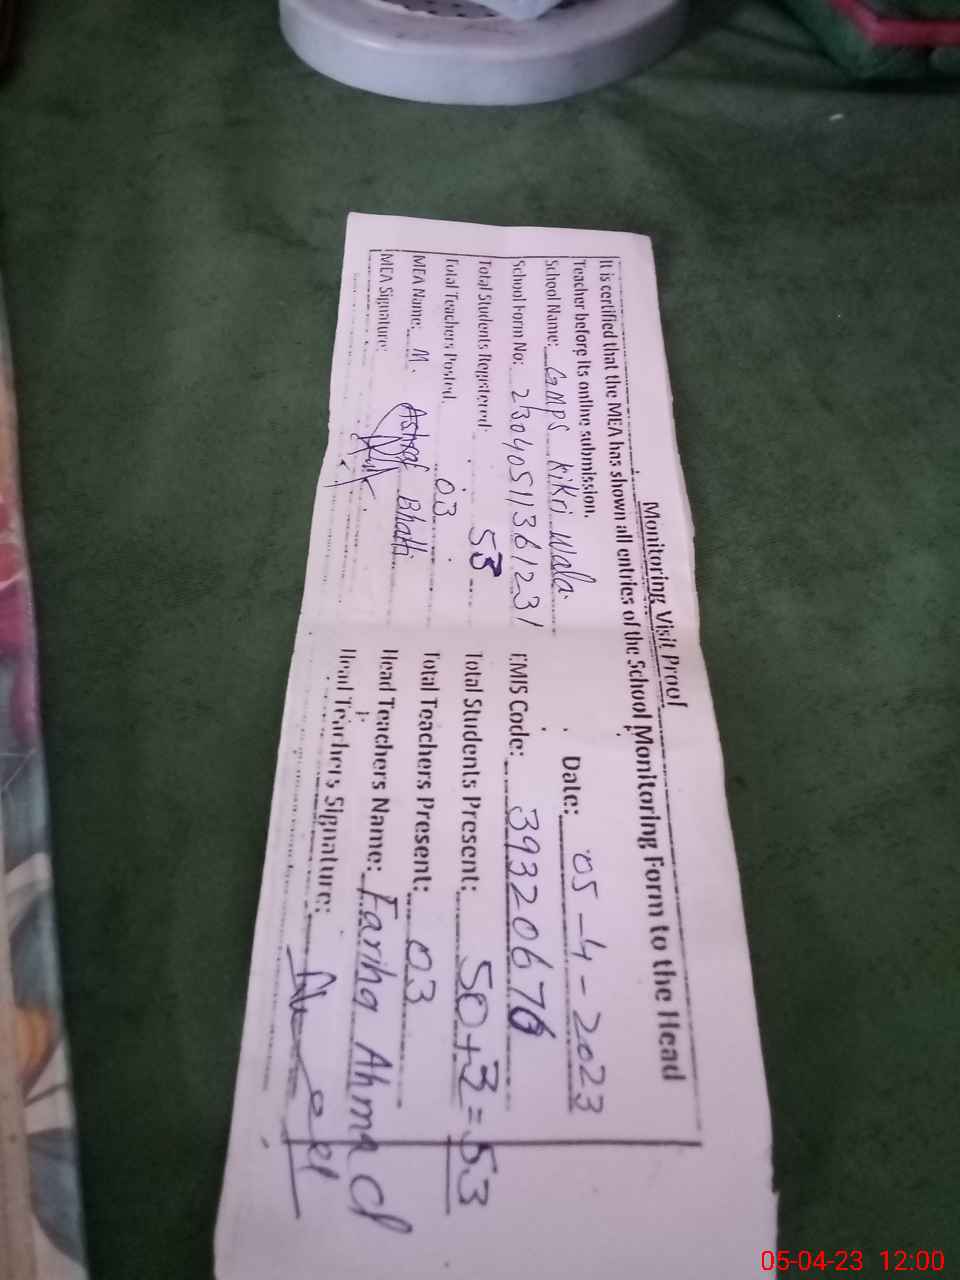 Monitoring Visit Proof
It is certified that the MEA has shown all entries of the School Monitoring Form to the Head
Teacher before its online submission. Date: 05-4-2023
School Name: GMPS Kikri Wala
School Form No: 2304051136123/ EMIS Code: 39320676
Total Students Registered: 53 Total Students Present: 50+3=53
Total Teachers Posted 03 Total Teachers Present: 03
MEA Name: M. Ashraf Bhatti Head Teachers Name: Fariha Ahmad
MEA Signature: Head Teachers Signature:
05-04-23 12:00